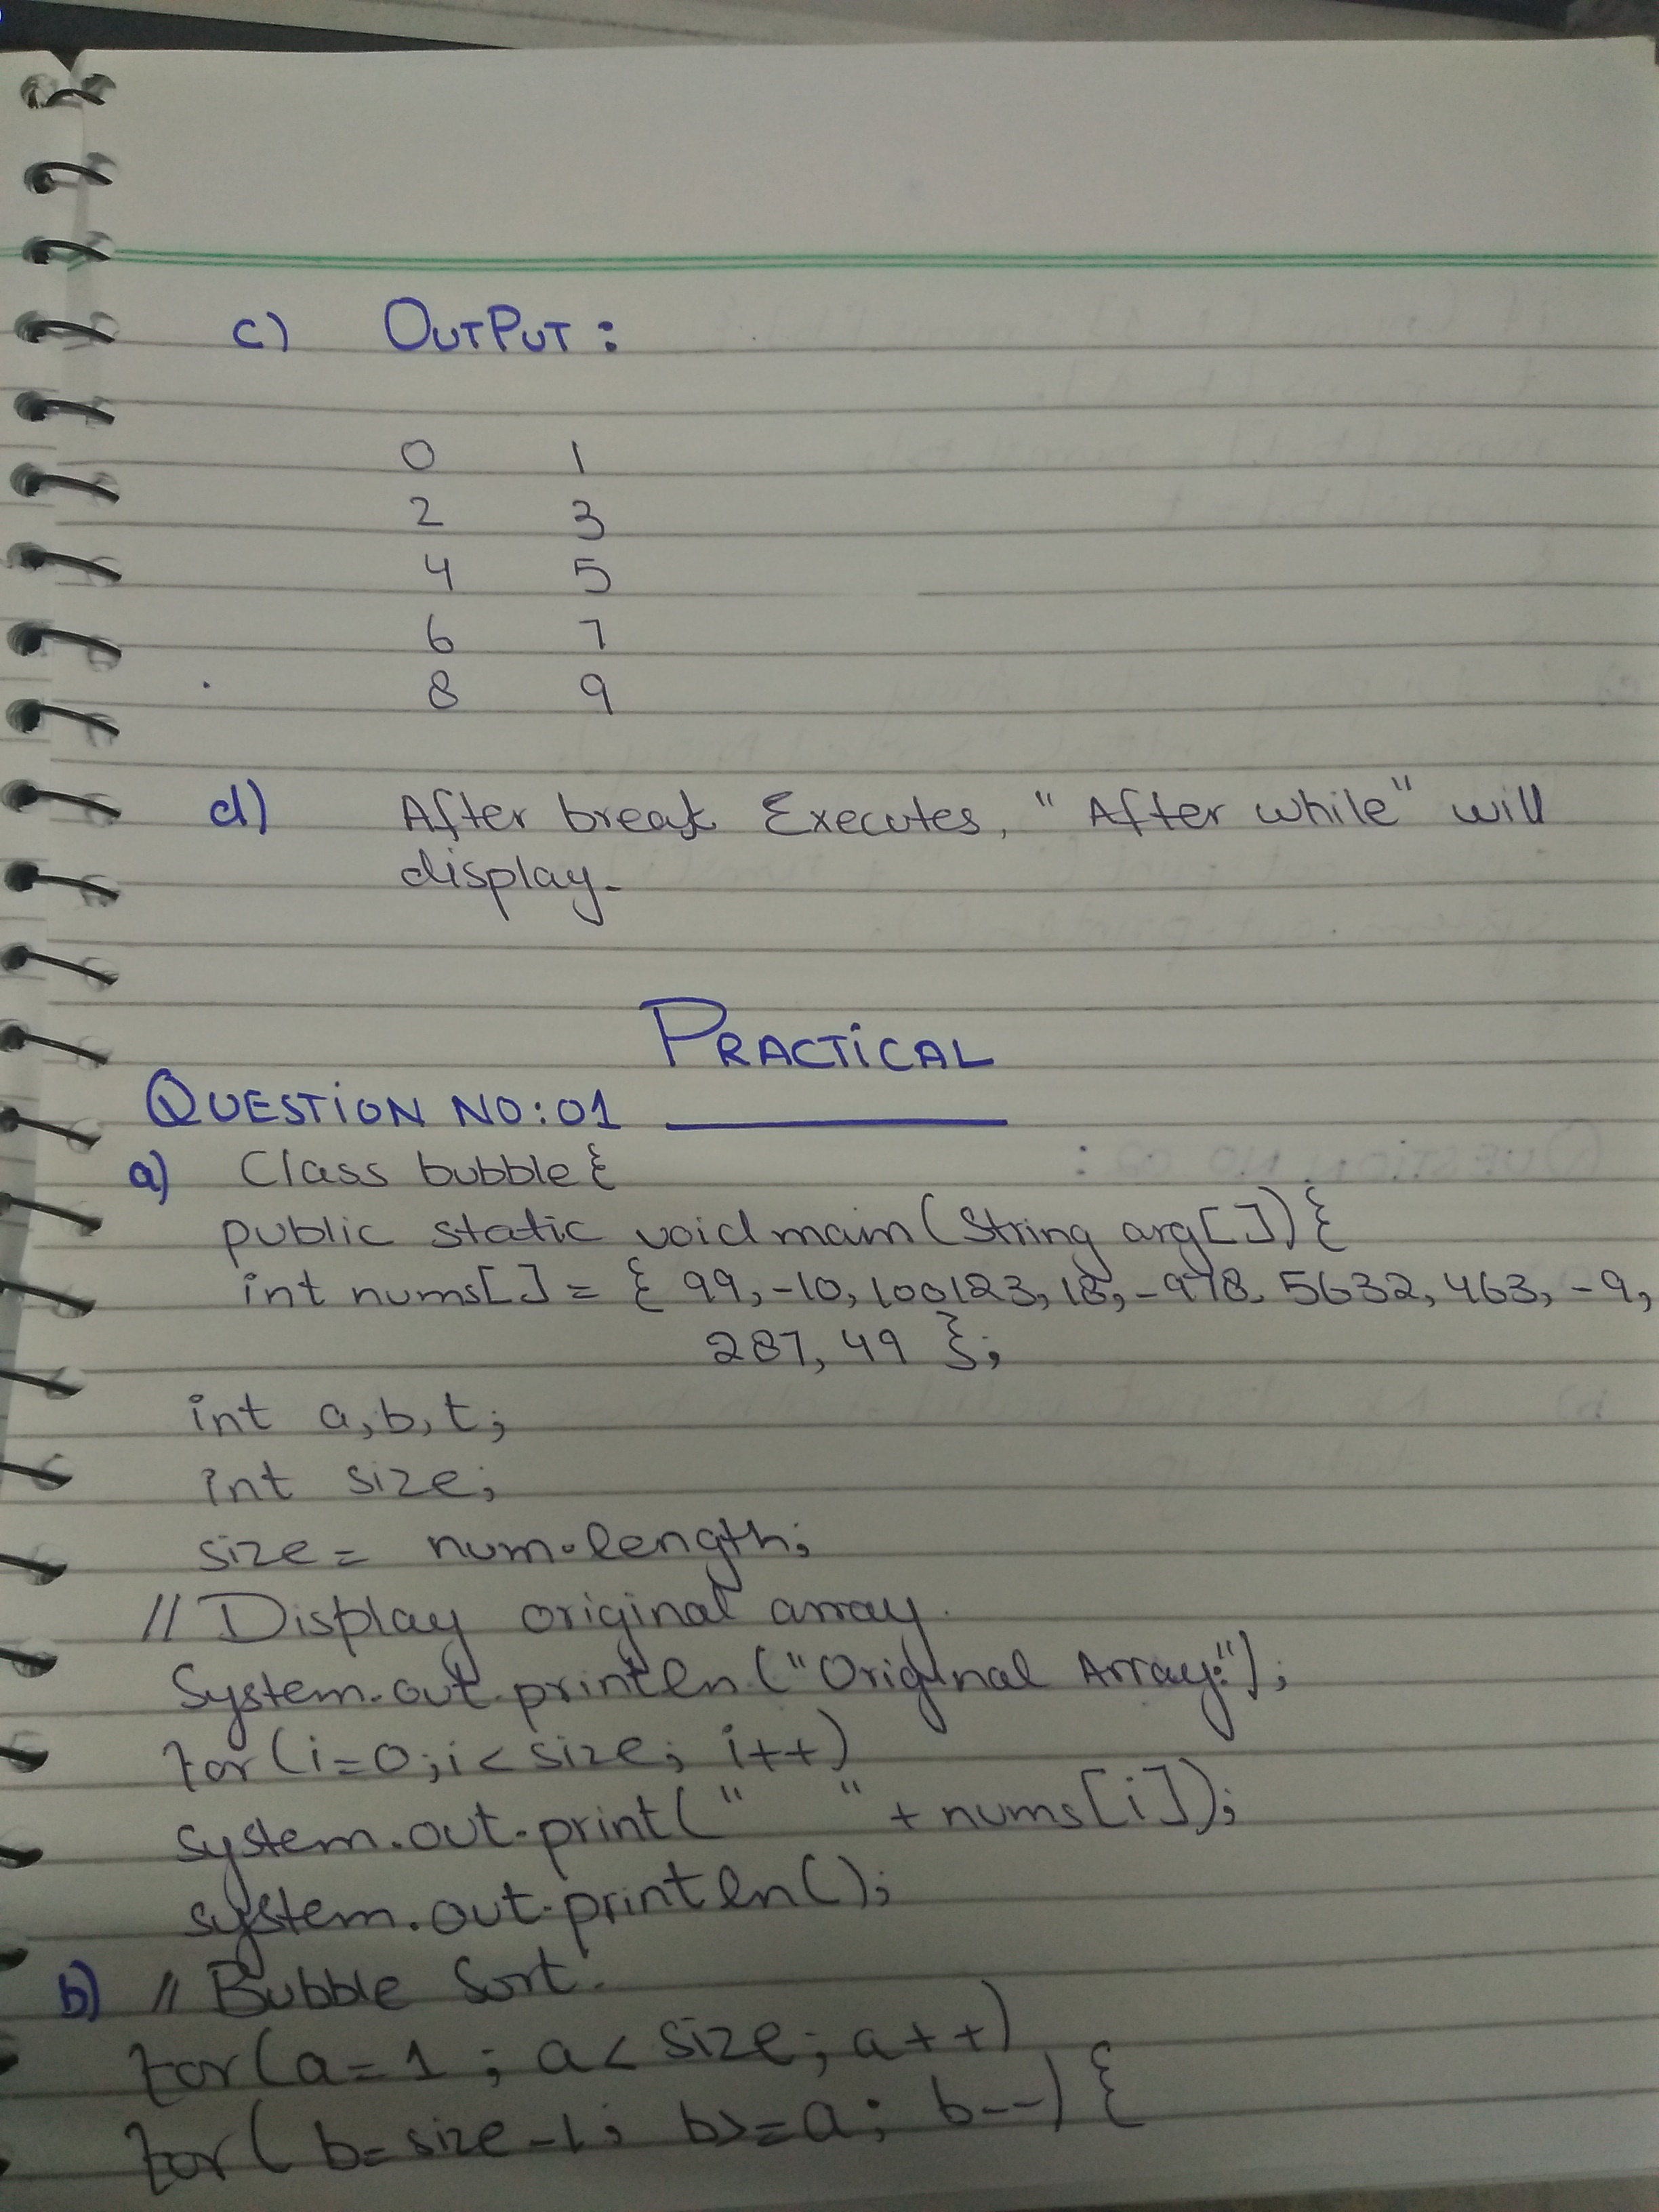 c) OUTPUT:
0 1
2 3
4 5
6 7
8 9
d) After break Executes, "After while" will
display.
PRACTICAL
QUESTION NO:01
a) Class bubble{
public static void main(String arg[]){
int nums[] = { 99, -10, 100123, 18, -978, 5632, 463, -9,
287, 49 };
int a, b, t;
int size;
size = num.length;
// Display original array.
System.out.println("Original Array:");
for(i=0; i< size; i++)
system.out.print(" " + nums[i]);
system.out.println();
b) // Bubble Sort.
for(a=1 ; a< size; a++)
for( b= size-1; b>=a; b--) {